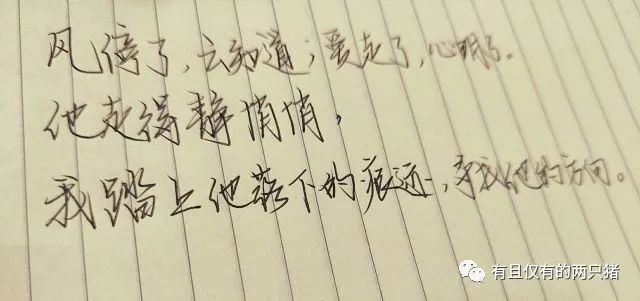 风停了，云知道；爱走了，心明了。
他走得静悄悄，
我踏上他落下的痕迹，寻找他的方向。
有且仅有的两只猪